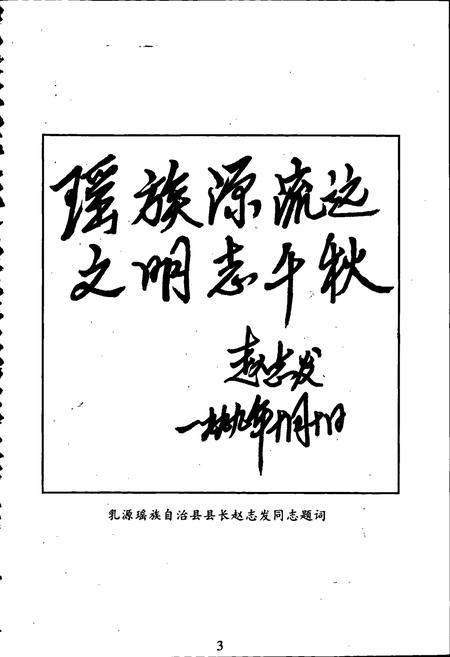 瑶族源流远
文明志千秋
赵志发
一九九九年十月十日
乳源瑶族自治县县长赵志发同志题词
3